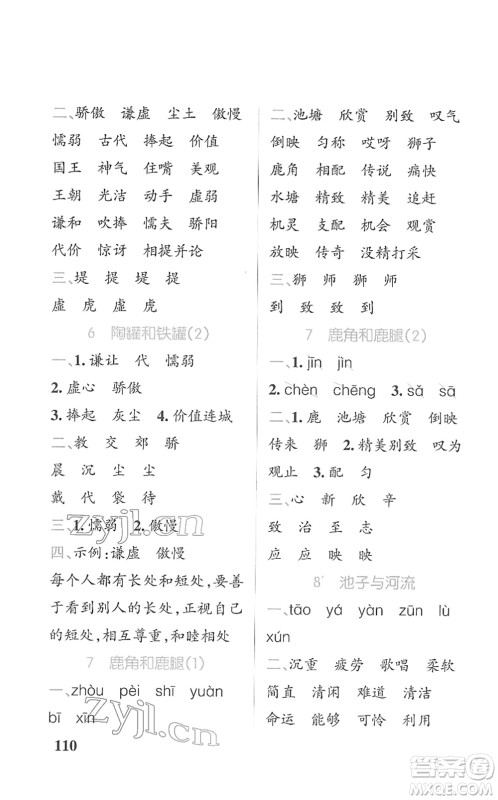 二、骄傲 谦虚 尘土 傲慢
懦弱 古代 捧起 价值
国王 神气 住嘴 美观
王朝 光洁 动手 虚弱
谦和 吹捧 懦夫 骄阳
代价 惊讶 相提并论
三、堤 提 堤 提
虚 虎 虚 虎
6 陶罐和铁罐(2)
一、1.谦让 代 懦弱
2.虚心 骄傲
3.捧起 灰尘 4.价值连城
二、教 交 郊 骄
晨 沉 尘 辰
戴 代 袋 待
三、1.懦弱 2.傲慢
四、示例:谦虚 傲慢
每个人都有长处和短处,要善
于看到别人的长处,正视自己
的短处,相互尊重,和睦相处
7 鹿角和鹿腿(1)
一、zhòu pèi shī yuàn
bī xīn
110
二、池塘 欣赏 别致 叹气
倒映 匀称 哎呀 狮子
鹿角 相配 传说 痛快
水塘 精致 精美 追赶
机灵 支配 机会 观赏
放映 传奇 没精打采
三、狮 师 狮 师
到 致 致 到
7 鹿角和鹿腿(2)
一、1.jīn jìn
2.chèn chēng 3.sǎ sā
二、1.鹿 池塘 欣赏 倒映
传来 狮 2.精美别致 叹为
观止 3.配 匀
三、心 新 欣 辛
致 治 至 志
应 应 映 映
8* 池子与河流
一、tāo yá yàn zūn lù
xún
二、沉重 疲劳 歌唱 柔软
简直 清闲 难道 清洁
命运 能够 可怜 利用
zyjl.cn
zyjl.cn
答案圈
MXQE.COM